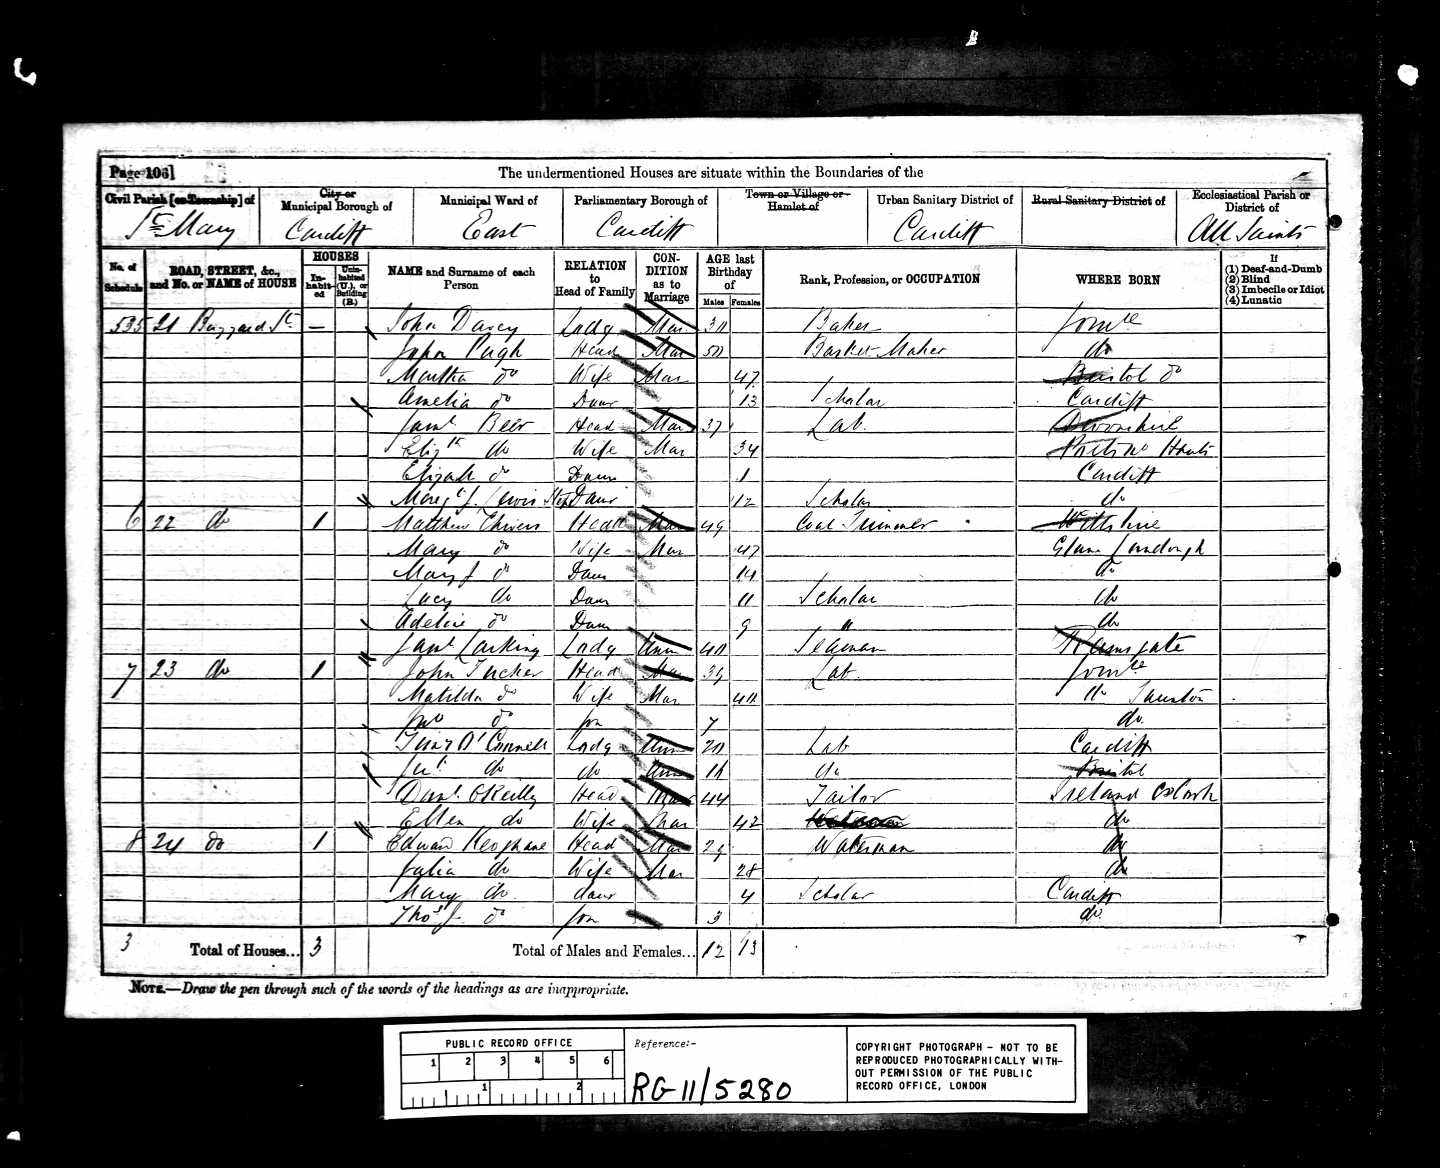 Page 106]
The undermentioned Houses are situate within the Boundaries of the
Civil Parish [or Township] of
City or Municipal Borough of
Municipal Ward of
Parliamentary Borough of
Town or Village or Hamlet of
Urban Sanitary District of
Rural Sanitary District of
Ecclesiastical Parish or District of
St Mary Cardiff East Cardiff Cardiff All Saints
No. of Schedule
ROAD, STREET, &c., and No. or NAME of HOUSE
HOUSES
Inhabited
Uninhabited (U.), or Building (B.)
NAME and Surname of each Person
RELATION to Head of Family
CONDITION as to Marriage
AGE last Birthday of
Males Females
Rank, Profession, or OCCUPATION
WHERE BORN
If
(1) Deaf-and-Dumb
(2) Blind
(3) Imbecile or Idiot
(4) Lunatic
535 21 St John Davey Lodg Mar 30 Baker
John Pugh Head Mar 50 Basket Maker do
Martha do Wife Mar 47 Bristol do
Amelia do Daur 13 Scholar Cardiff
Beer Head Mar 37 Lab. Devonshire
Elizth do Wife Mar 34 Hants
Elizath do Daur 1 Cardiff
Lewis Step Daur 12 Scholar do
6 22 do 1 Matthew Head Mar 49 Coal Trimmer Wiltshire
Mary do Wife Mar 47 Glam
Mary J do Daur 14 do
Lucy do Daur 11 Scholar do
Adeline do Daur 9 " do
Larking Lodg Unm 40 Seaman Ramsgate
7 23 do 1 John Tucker Head Mar 39 Lab.
Matilda do Wife Mar 40 do Taunton
Jno do Son 7 do
O'Connell Lodg Unm 20 Lab Cardiff
do do Unm 16 do Bristol
Danl O'Reilly Head Mar 44 Tailor Ireland Co Cork
Ellen do Wife Mar 42 do
8 24 do 1 Edward Keoghane Head Mar 29 Waterman do
Julia do Wife Mar 28 do
Mary do daur 4 Scholar Cardiff
Thos J do Son 3 do
3 Total of Houses... 3 Total of Males and Females... 12 13
NOTE.—Draw the pen through such of the words of the headings as are inappropriate.
PUBLIC RECORD OFFICE
1 2 3 4 5 6
1 2
Reference:-
RG 11/5280
COPYRIGHT PHOTOGRAPH - NOT TO BE
REPRODUCED PHOTOGRAPHICALLY WITH-
OUT PERMISSION OF THE PUBLIC
RECORD OFFICE, LONDON